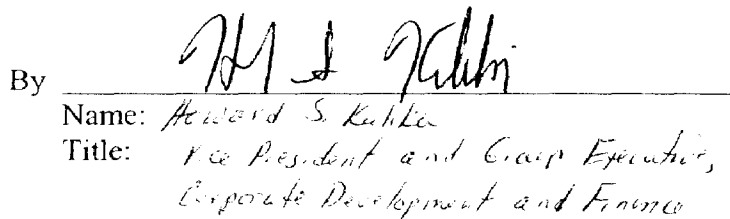 By
Name: Howard S.
Title: Vice President and Group Executive,
Corporate Development and Finance